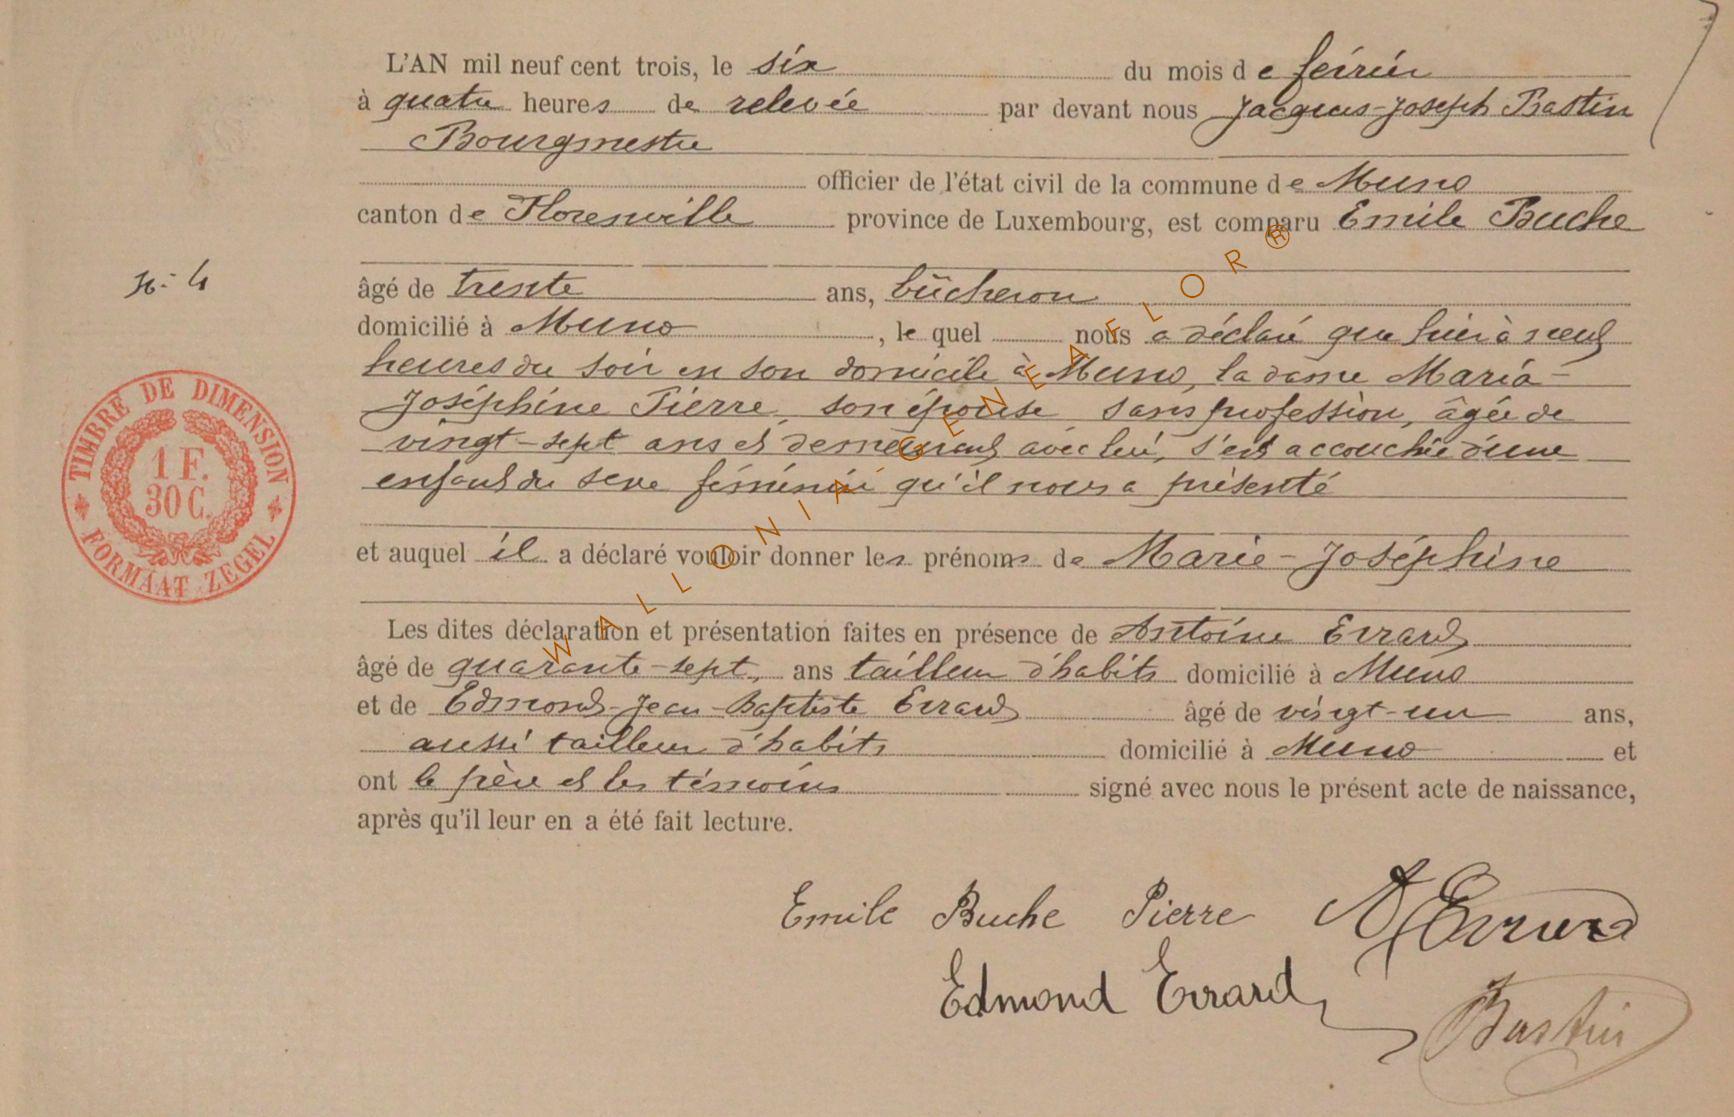 L'AN mil neuf cent trois, le six du mois de février
à quatre heures de relevée par devant nous Jacques-Joseph Bastin
Bourgmestre
officier de l'état civil de la commune de Muno
canton de Florenville province de Luxembourg, est comparu Emile Buche
N° 4
âgé de trente ans, bûcheron
domicilié à Muno, le quel nous a déclaré que hier à neuf
heures du soir en son domicile à Muno, la dame Maria-
Joséphine Pierre, son épouse sans profession, âgée de
vingt-sept ans et demeurant avec lui, s'est accouchée d'une
enfant du sexe féminin qu'il nous a présenté
et auquel il a déclaré vouloir donner les prénoms de Marie-Joséphine
Les dites déclaration et présentation faites en présence de Antoine Errard
âgé de quarante-sept, ans tailleur d'habits domicilié à Muno
et de Edmond-Jean-Baptiste Errard âgé de vingt-un ans,
aussi tailleur d'habits domicilié à Muno et
ont le père et les témoins signé avec nous le présent acte de naissance,
après qu'il leur en a été fait lecture.
Emile Buche Pierre A Errard
Edmond Errard
Bastin
TIMBRE DE DIMENSION
1 F.
30 C.
FORMAAT ZEGEL
WALLONIA-GENEAFLOR®